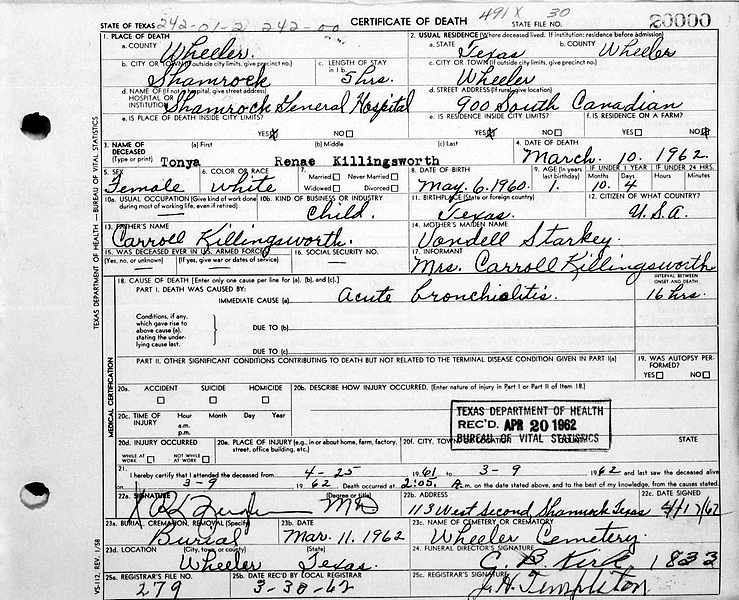 STATE OF TEXAS 242-01-2 242-00 CERTIFICATE OF DEATH 491X 30 STATE FILE NO. 20000
1. PLACE OF DEATH 2. USUAL RESIDENCE (Where deceased lived. If institution: residence before admission)
a. COUNTY Wheeler a. STATE Texas b. COUNTY Wheeler
b. CITY OR TOWN (If outside city limits, give precinct no.) c. LENGTH OF STAY in 1 b. c. CITY OR TOWN (If outside city limits, give precinct no.)
Shamrock 5 hrs. Wheeler
d. NAME OF (If not in hospital, give street address) HOSPITAL OR INSTITUTION Shamrock General Hospital d. STREET ADDRESS (If rural, give location) 900 South Canadian
e. IS PLACE OF DEATH INSIDE CITY LIMITS? e. IS RESIDENCE INSIDE CITY LIMITS? f. IS RESIDENCE ON A FARM?
YES NO YES NO YES NO
3. NAME OF DECEASED (Type or print) (a) First (b) Middle (c) Last 4. DATE OF DEATH
Tonya Renae Killingsworth March. 10. 1962.
5. SEX 6. COLOR OR RACE 7. Married Never Married Widowed Divorced 8. DATE OF BIRTH 9. AGE (In years last birthday) IF UNDER 1 YEAR IF UNDER 24 HRS.
Months Days Hours Minutes
Female White May. 6. 1960. 1. 10. 4
10a. USUAL OCCUPATION (Give kind of work done during most of working life, even if retired) 10b. KIND OF BUSINESS OR INDUSTRY 11. BIRTHPLACE (State or foreign country) 12. CITIZEN OF WHAT COUNTRY?
Child. Texas. U.S.A.
13. FATHER'S NAME 14. MOTHER'S MAIDEN NAME
Carroll Killingsworth. Vondell Starkey.
15. WAS DECEASED EVER IN U.S. ARMED FORCES? 16. SOCIAL SECURITY NO. 17. INFORMANT
(Yes, no, or unknown) (If yes, give war or dates of service) Mrs. Carroll Killingsworth
18. CAUSE OF DEATH [Enter only one cause per line for (a), (b), and (c).] INTERVAL BETWEEN ONSET AND DEATH
PART I. DEATH WAS CAUSED BY:
IMMEDIATE CAUSE (a) Acute bronchiolitis. 16 hrs.
Conditions, if any, which gave rise to above cause (a), stating the underlying cause last.
DUE TO (b)
DUE TO (c)
PART II. OTHER SIGNIFICANT CONDITIONS CONTRIBUTING TO DEATH BUT NOT RELATED TO THE TERMINAL DISEASE CONDITION GIVEN IN PART I(a) 19. WAS AUTOPSY PERFORMED?
YES NO
20a. ACCIDENT SUICIDE HOMICIDE 20b. DESCRIBE HOW INJURY OCCURRED. (Enter nature of injury in Part I or Part II of Item 18.)
20c. TIME OF INJURY Hour Month Day Year
a.m.
p.m.
TEXAS DEPARTMENT OF HEALTH
REC'D. APR 20 1962
BUREAU OF VITAL STATISTICS
20d. INJURY OCCURRED WHILE AT WORK NOT WHILE AT WORK 20e. PLACE OF INJURY (e.g., in or about home, farm, factory, street, office building, etc.) 20f. CITY, TOWN STATE
21. I hereby certify that I attended the deceased from 4-25 1961 to 3-9 1962 and last saw the deceased alive
3-9 1962. Death occurred at 2:05 A.m. on the date stated above, and to the best of my knowledge, from the causes stated.
22a. SIGNATURE (Degree or title) MD 22b. ADDRESS 22c. DATE SIGNED
113 West Second Shamrock Texas 4/17/62
23a. BURIAL, CREMATION, REMOVAL (Specify) 23b. DATE 23c. NAME OF CEMETERY OR CREMATORY
Burial Mar. 11. 1962 Wheeler Cemetery.
23d. LOCATION (City, town, or county) (State) 24. FUNERAL DIRECTOR'S SIGNATURE
Wheeler Texas. C. B. Kirk. 1833
25a. REGISTRAR'S FILE NO. 25b. DATE REC'D BY LOCAL REGISTRAR 25c. REGISTRAR'S SIGNATURE
279 3-30-62 J. H. Templeton
TEXAS DEPARTMENT OF HEALTH — BUREAU OF VITAL STATISTICS
MEDICAL CERTIFICATION
VS-112, REV. 1/58